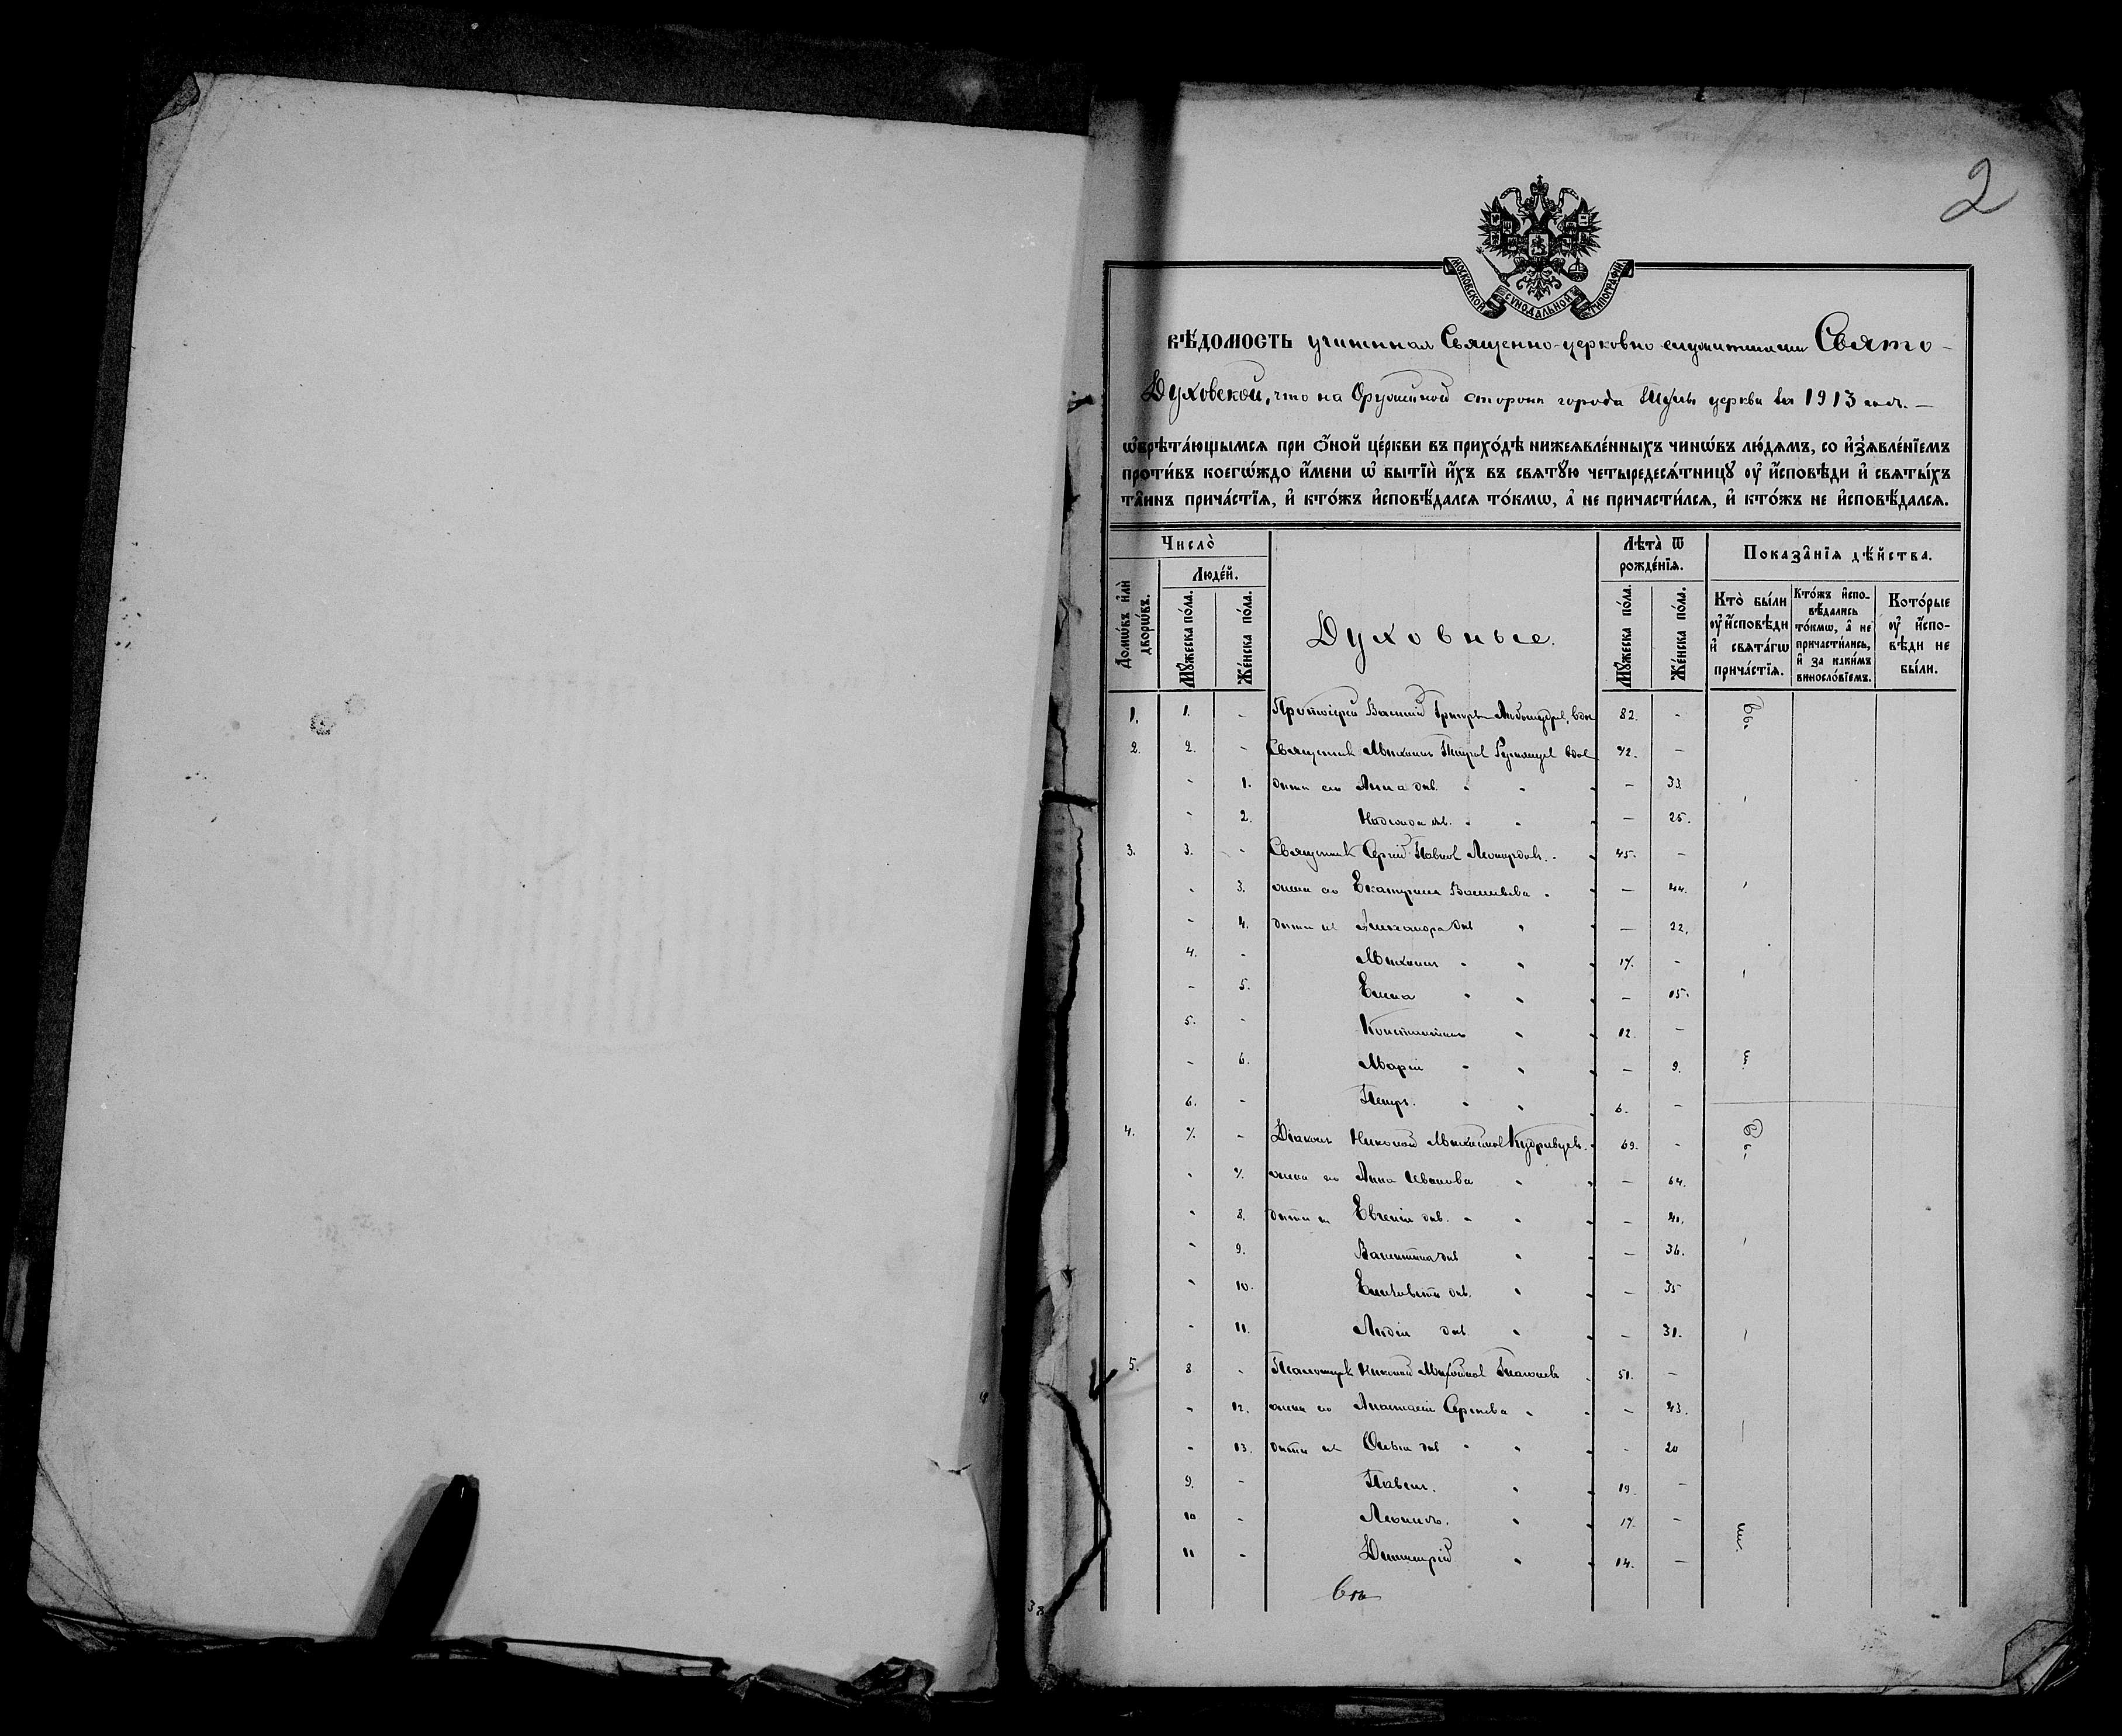 2
МОСКОВСКОЙ СУНОДАЛЬНОЙ ТИПОГРАФІИ
ВѢДОМОСТЬ учиненная Священно-церковно служителями Свято-
Духовской, что на Оружейной сторонѣ города Тулы церкви за 1913 годъ. —
ѡбрѣта́ющымся при ѻ҆́ной це́ркви въ прихо́дѣ нижеѧвле́нныхъ чинѡ́въ лю́дямъ, со и҆з̾ѧвле́нїемъ
проти́въ коегѡ́ждо и҆́мени ѡ҆ бытїѝ и҆́хъ въ свѧтꙋ́ю четыредесѧ́тницꙋ ᲂу҆ и҆́сповѣди и҆ свѧты́хъ
та̑инъ прича́стїѧ, и҆ кто́жъ и҆сповѣ́дался то́кмѡ, а҆ не причасти́лся, и҆ кто́жъ не и҆сповѣ́дался.
Число̀
Люде́й.
Домѡ́въ и҆лѝ дворѡ́въ.
Мꙋ́жеска по́ла.
Же́нска по́ла.
Духовные.
Лѣта̀ ѿ рожде́нїѧ.
Мꙋ́жеска по́ла.
Же́нска по́ла.
Показа̑нїѧ дѣ́йства.
Кто̀ бы́ли ᲂу҆ и҆́сповѣди и҆ свѧта́гѡ прича́стїѧ.
Кто́жъ и҆спо-вѣ́дались то́кмѡ, а҆ не причасти́лись, и҆ за каки́мъ винослⷪ́вїемъ.
Кото́рые ᲂу҆ и҆́спо-вѣди не бы́ли.
1. 1. - Протоіерей Василій Григорьев Любомудров, вдов 82. -
2. 2. - Священник Михаил Петров вдов 72. -
- 1. дѣти его Анна дѣв. - 33.
- 2. Надежда дѣв. - 25.
3. 3. - Священник Сергій Павлов Леонардов. 45. -
- 3. жена его Екатерина Васильева - 44.
- 4. дѣти их Александра дѣв - 22.
4. - Михаил 17. -
- 5. Елена - 15.
5. - Константинъ 12. -
- 6. Марія - 9.
6. - Петръ. 6. -
4. 7. - Діаконъ Николай Михайлов Кудрявцевъ. 69. -
- 7. жена его Анна Иванова - 64.
- 8. дѣти их Евгенія дѣв. - 40.
- 9. Валентина дѣв - 36.
- 10. Елизавета дѣв. - 35
- 11. Лидія дѣв. - 31.
5. 8 - Псаломщик Николай Михайлов Глаголев 51. -
- 12. жена его Анастасія Сергеева - 43.
- 13. дѣти их Ольга дѣв - 20
9. - Павелъ. 19. -
10 - Леонидъ. 17. -
11 - Димитрій 14. -